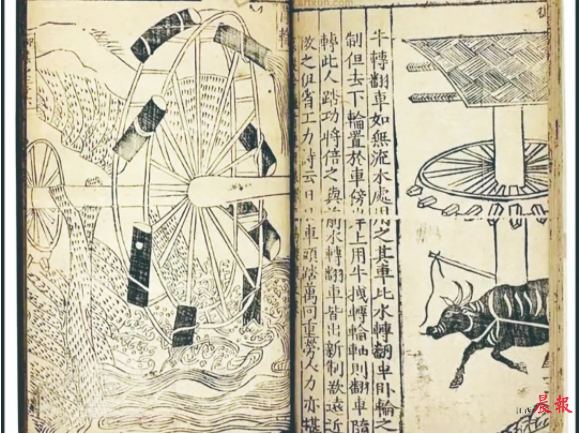 牛轉翻車如無流水處用之其車比水轉翻車卧輪之
制但去下輪置於車傍岸上用牛拽轉輪軸則翻車隨
轉此人踏功將倍之與前水轉翻車皆出新制欲遠近
傚之俱省工力詩云日日車頭踏萬回重勞人力亦堪
江西晨報